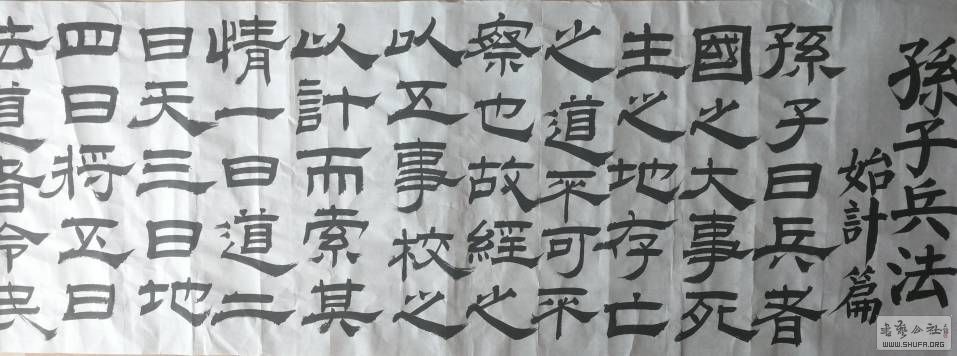 孫子兵法
始計篇
孫子曰兵者
國之大事死
生之地存亡
之道不可不
察也故經之
以五事校之
以計而索其
情一曰道二
曰天三曰地
四曰将五曰
法道者令民
書藝公社
WWW.SHUFA.ORG